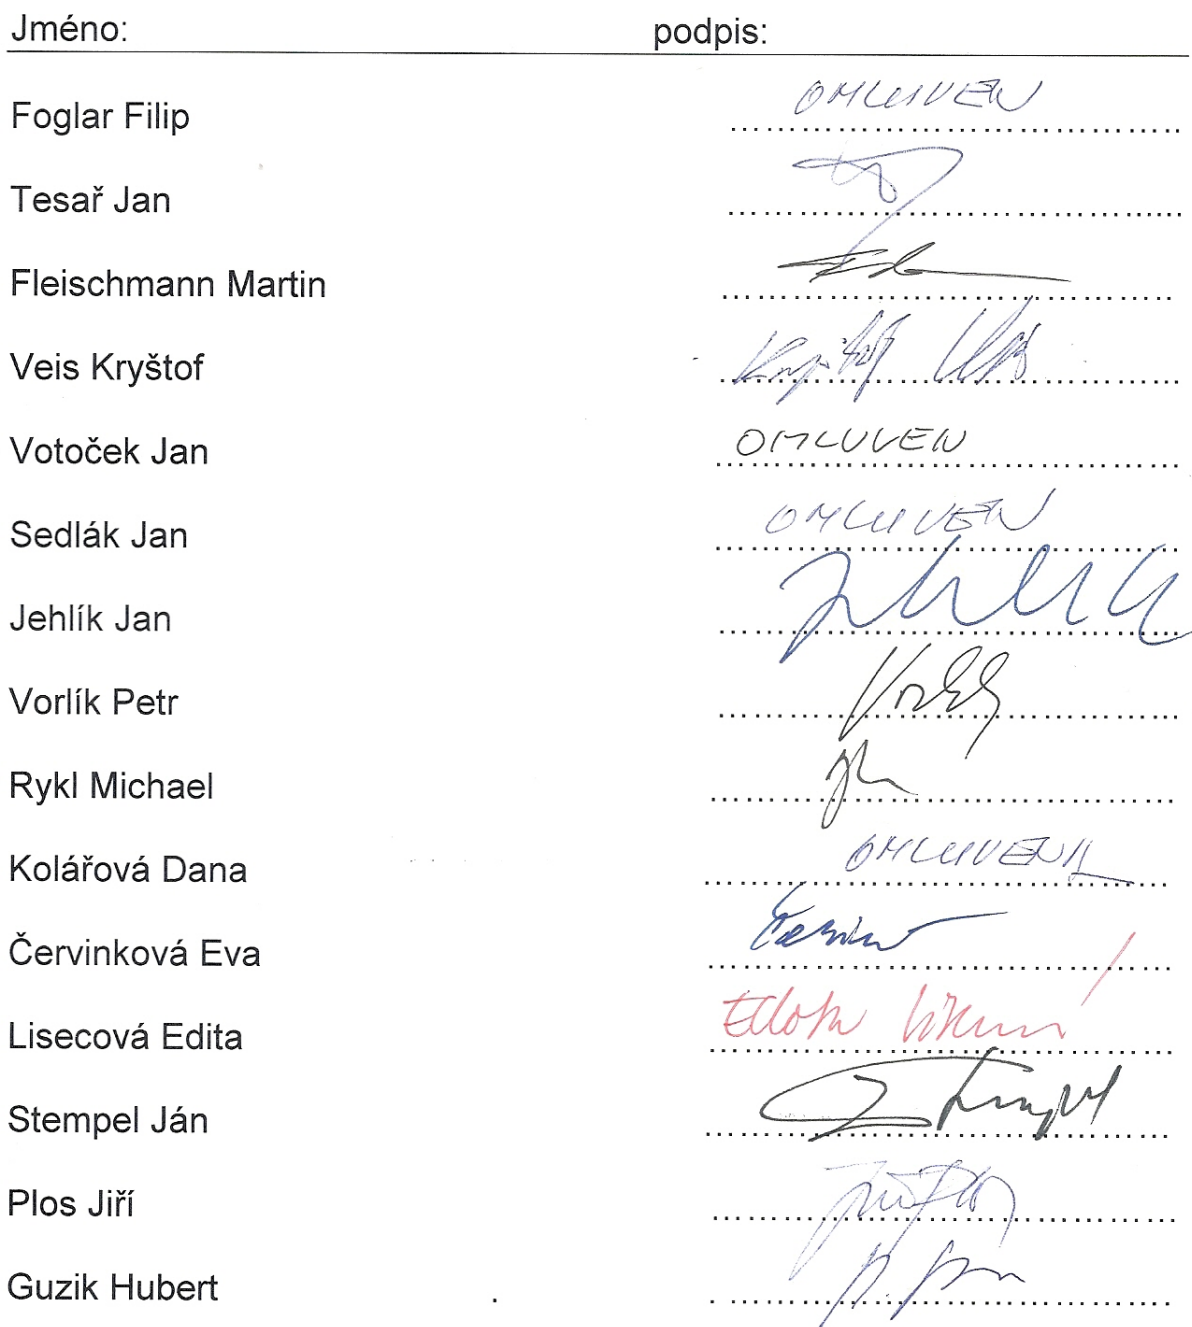 Jméno: podpis:
Foglar Filip OMLUVEN
Tesař Jan
Fleischmann Martin
Veis Kryštof Kryštof Veis
Votoček Jan OMLUVEN
Sedlák Jan OMLUVEN
Jehlík Jan
Vorlík Petr
Rykl Michael
Kolářová Dana OMLUVENA
Červinková Eva
Lisecová Edita
Stempel Ján Stempel
Plos Jiří Jiří Plos
Guzik Hubert